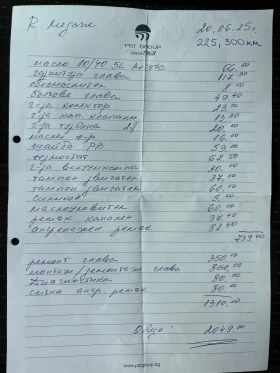 R Megane 20.06.25г.
PST GROUP
since 1968
225,300км.
масло 10/40 5L 60.00
гарнитура глава 117.30
обезмаслител 8.00
болтове глава 49.40
г-ја колектор 23.00
г-ја кап. клапани 13.30
г-ја турбина 20.00
маслен ф-р 16.00
шайба РВ 59.00
термостат 62.50
г-ја вакуумпомпа 30.00
тампон двигател 37.00
тампон двигател 60.00
силикон 5.00
маслоуловител 60.00
ремък канален 37.40
ангренажен ремък 82.40
739.40
ремонт глава 350.00
монтаж/демонтаж глава 800.00
Диагностика 80.00
смяна ангр. ремък 80.00
1310.00
Общо: 2049.00
www.pstgroup.bg